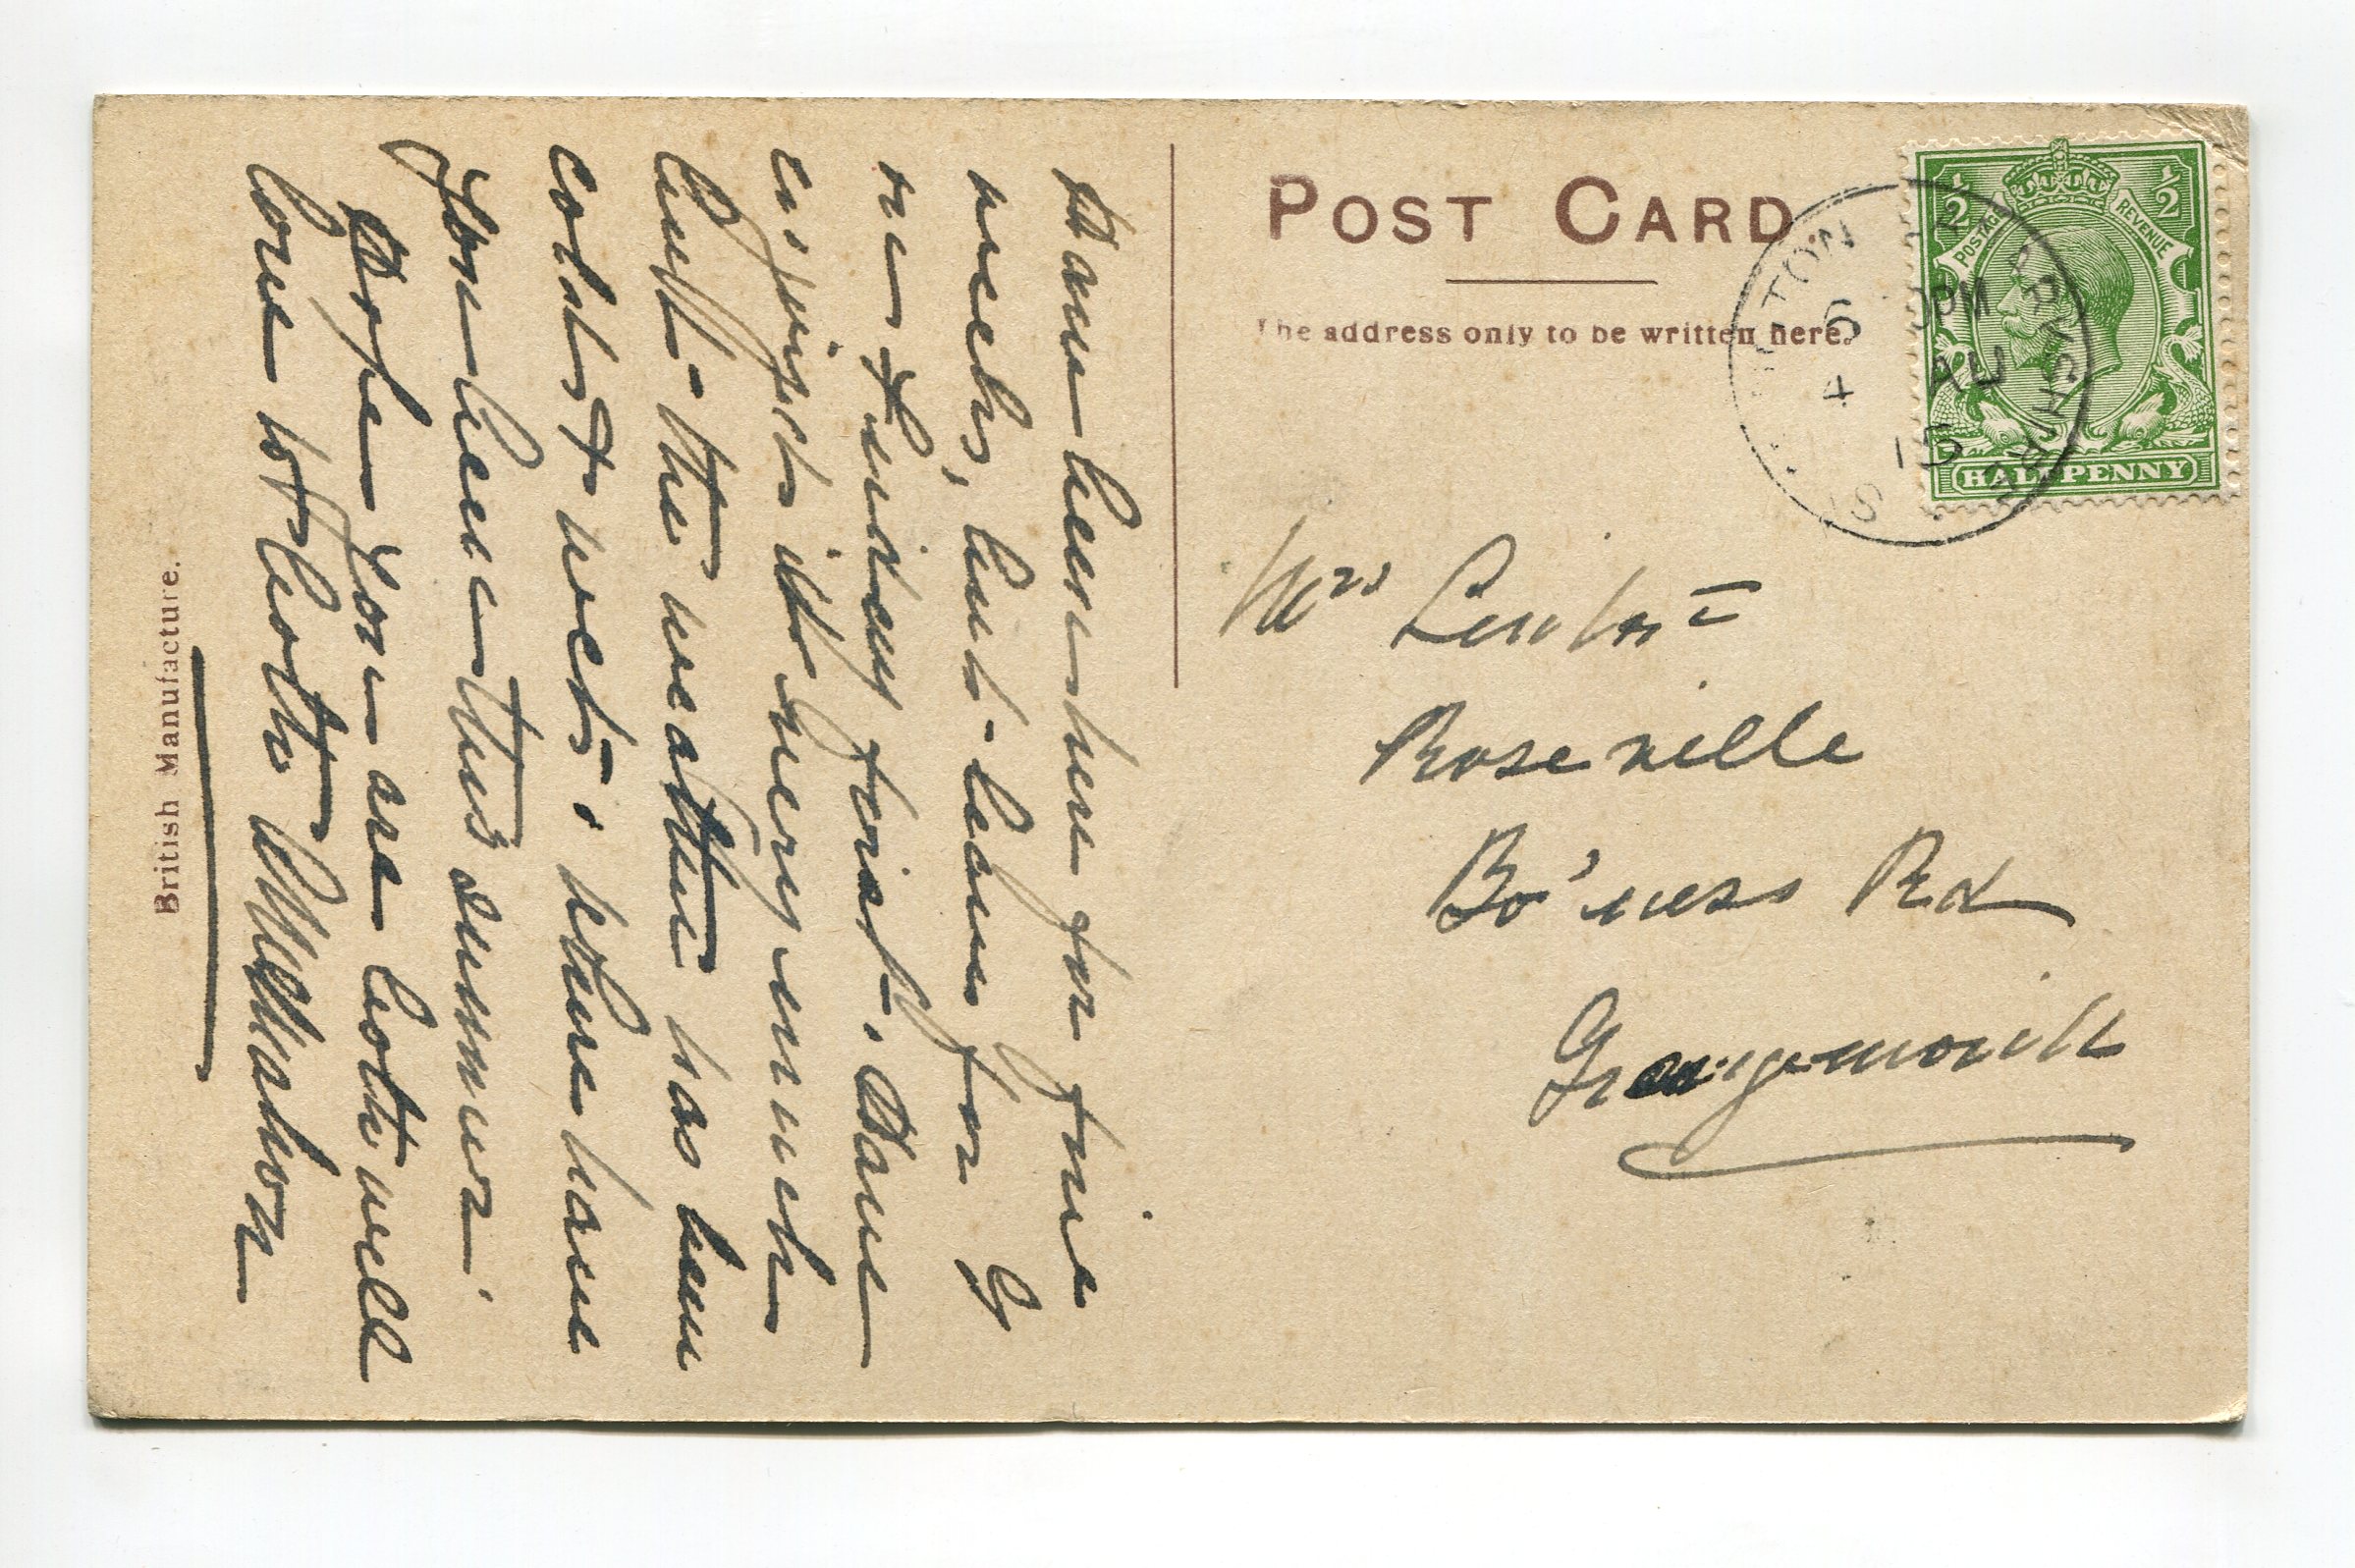 POST CARD.
The address only to be written here.
½ ½
POSTAGE REVENUE
HALFPENNY
TON BERWICKSHIRE
6 PM
4 AU
15
Mrs
Roseville
Bo'ness Rd
Grangemouth
Have been here for five
weeks, but leave for G
on Friday first. Have
enjoyed it very much
but the weather has been
cold & wet. Where have
You been this summer.
Hope You are both well
Love to both M McMahon
British Manufacture.